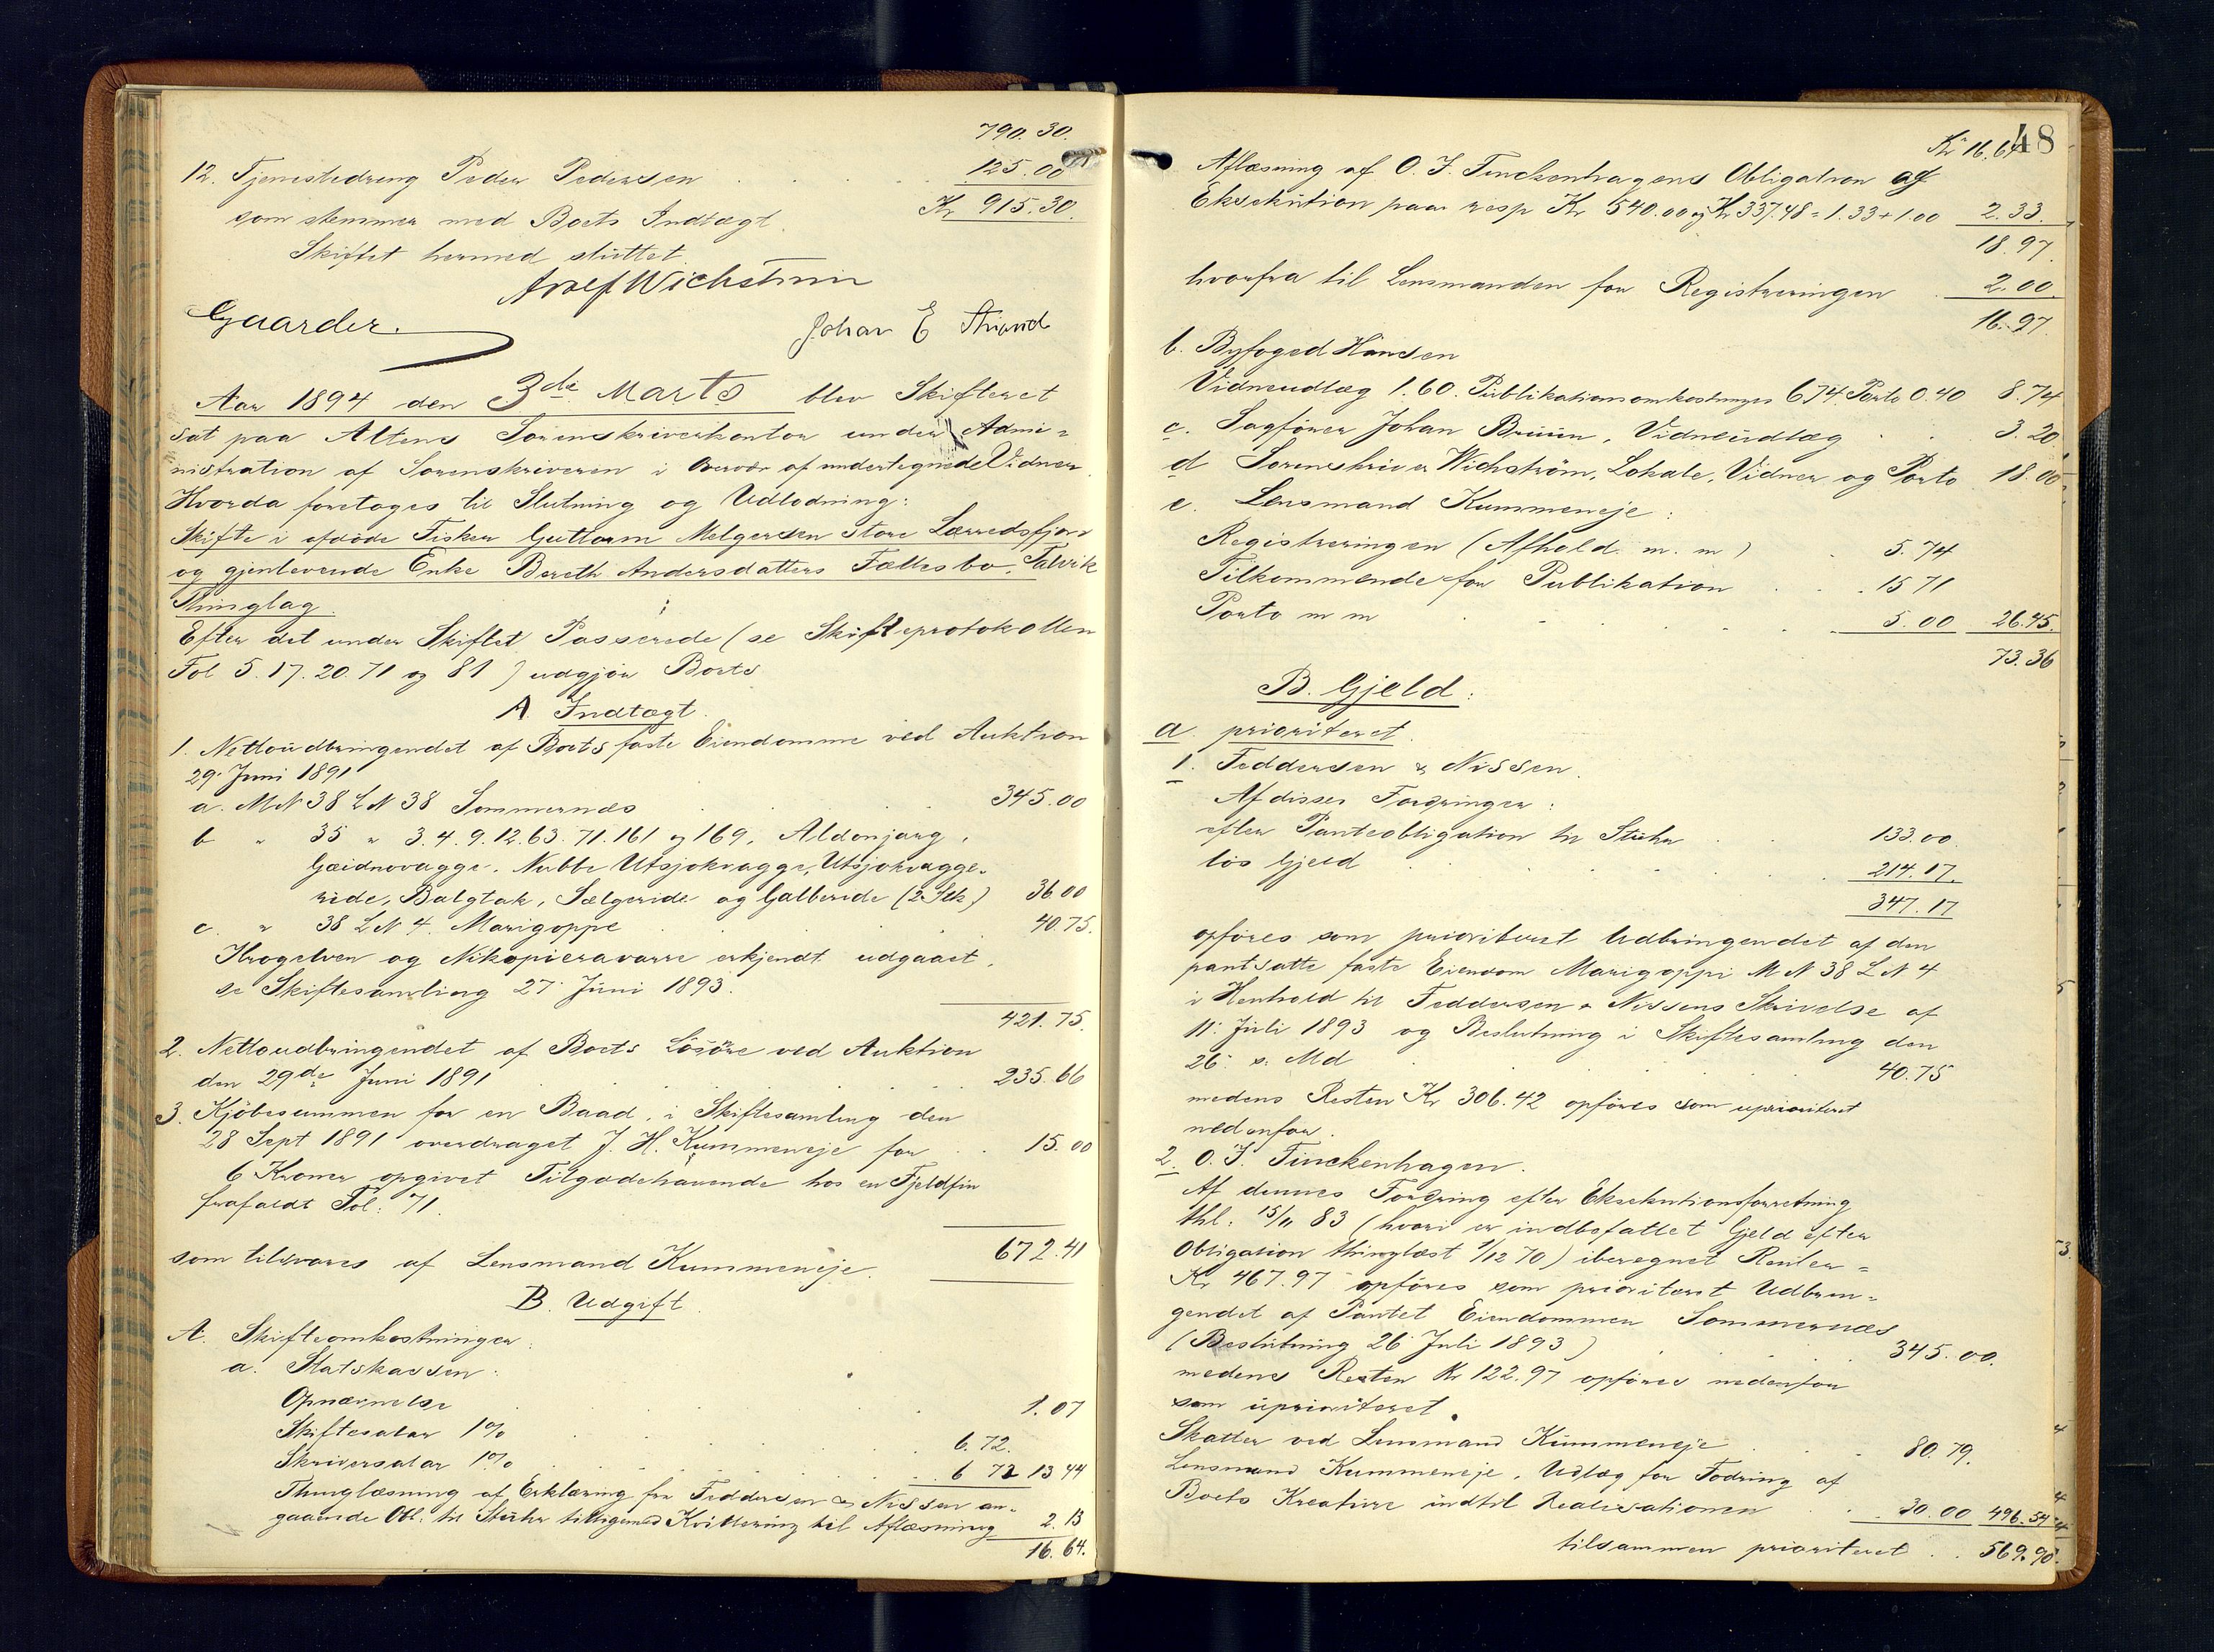 790.30.
12. Tjenestedreng Peder Pedersen . . . 125.00
som stemmer med Boets Indtægt. Kr 915.30.
Skiftet hermed sluttet
Adolf Wichstrøm
Gaarder. Johan E Strand
Aar 1894 den 3de Marts blev Skifteret
sat paa Altens Sorenskriverkontor under Admi=
nistration af Sorenskriveren i Overvær af undertegnede Vidner
Hvorda foretoges til Slutning og Udlodning:
Skifte i afdöde Fisker Guttorm Melgersen Store Lærredsfjord
og gjenlevende Enke Bereth Andersdatters Fællesbo, Talvik
Thinglag.
Efter det under Skiftet Passerede (se Skifteprotokollen
Fol 5.17.20.71 og 81) udgjør Boets
A. Indtægt.
1. Nettoudbringendet af Boets faste Eiendomme ved Auktion
29. Juni 1891
a. MN 38 LN 38 Sommernæs . . . 345.00
b " 35 " 3.4.9.12.63.71.161 og 169, Aldonjarg,
Gæidnovagge, Nubbe Utsjokvagge, Utsjokvagge-
ride, Balgtak, Sælgeride og Galberide (2 Stk) 36.00
c. " 38 LN 4. Marigoppe . . . 40.75.
Krogelven og Nikopieravarre erkjendt udgaaet,
se Skiftesamling 27 Juni 1893.
421.75.
2. Nettoudbringendet af Boets Lösöre ved Auktion
den 29de Juni 1891 . . . 235.66
3. Kjöbesummen for en Baad, i Skiftesamling den
28 Sept 1891 overdraget J. H. Kummeneje for . . 15.00
6 Kroner opgivet Tilgodehavende hos en Fjeldfin
frafaldt Fol: 71.
som tilsvares af Lensmand Kummeneje. 672.41
B. Udgift.
A. Skifteomkostninger:
a. Statskassen:
Opnævnelse . . . 1.07
Skiftesalær 1% . . . 6.72.
Skriversalær 1% . . . 6 72 13 44
Thinglæsning af Erklæring fra Feddersen & Nissen an-
gaaende Obl. til Stuhr tilligemed Kvittering til Aflæsning 2.13
16.64.
48
Kr 16.64
Aflæsning af O. J. Finckenhagens Obligation og
Eksekution paa resp Kr 540.00 og Kr 337.48 = 1.33 + 1.00 2.33.
18.97.
hvorfra til Lensmanden for Registreringen . 2.00.
16.97.
b. Byfoged Hansen
Vidneudlæg 1.60. Publikationsomkostninger 6.74. Porto 0.40 8.74
c. Sagförer Johan Bruun, Vidneudlæg . . 3.20
d Sorenskriver Wichström, Lokale, Vidner og Porto 18.00
e. Lensmand Kummeneje:
Registreringen (Afhold. m. m) . 5.74
Tilkommende for Publikation . . . 15 71
Porto m m . . . 5.00 26.45.
73.36
B. Gjeld:
a. prioriteret.
1. Feddersen & Nissen.
Af disses Fordringer:
efter Panteobligation til Stuhr . . 133.00.
lös Gjeld . . . 214.17.
347.17
opföres som prioriteret Udbringendet af den
pantsatte faste Eiendom Marigoppi MN 38 LN 4
i Henhold til Feddersen & Nissens Skrivelse af
11. Juli 1893 og Beslutning i Skiftesamling den
26. s. Md . . . 40.75
medens Resten Kr 306.42 opföres som uprioriteret
nedenfor.
2. O. J. Finckenhagen.
Af dennes Fordring efter Eksekutionsforretning
thl: 15/11 83 (hvori er indbefattet Gjeld efter
Obligation thinglæst 1/12 70) iberegnet Renter =
Kr 467.97 opföres som prioriteret Udbrin=
gendet af Pantet Eiendommen Sommernæs
(Beslutning 26 Juli 1893) . . . 345.00.
medens Resten Kr 122.97 opföres nedenfor
som uprioriteret.
Skatter ved Lensmand Kummeneje . . . 80.79.
Lensmand Kummeneje, Udlæg for Fodring af
Boets Kreature indtil Realisationen . . 30.00 496.54
tilsammen prioriteret . . 569.90.